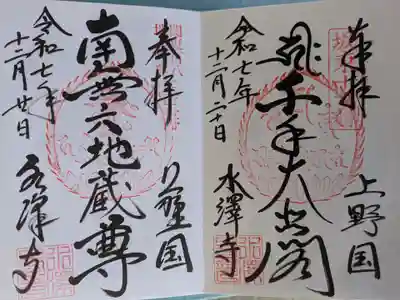 奉拝
上野国
千手大悲閣
水澤寺
令和七年
十二月二十日
奉拝
上野国
南無六地蔵尊
水澤寺
令和七年
十二月廿日